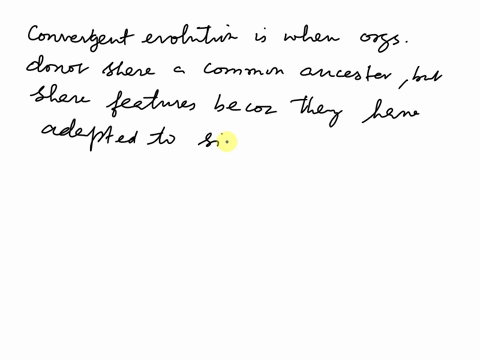 Convergent evolution is when orgs.
donot share a common ancester, but
share features becoz they have
adapted to si